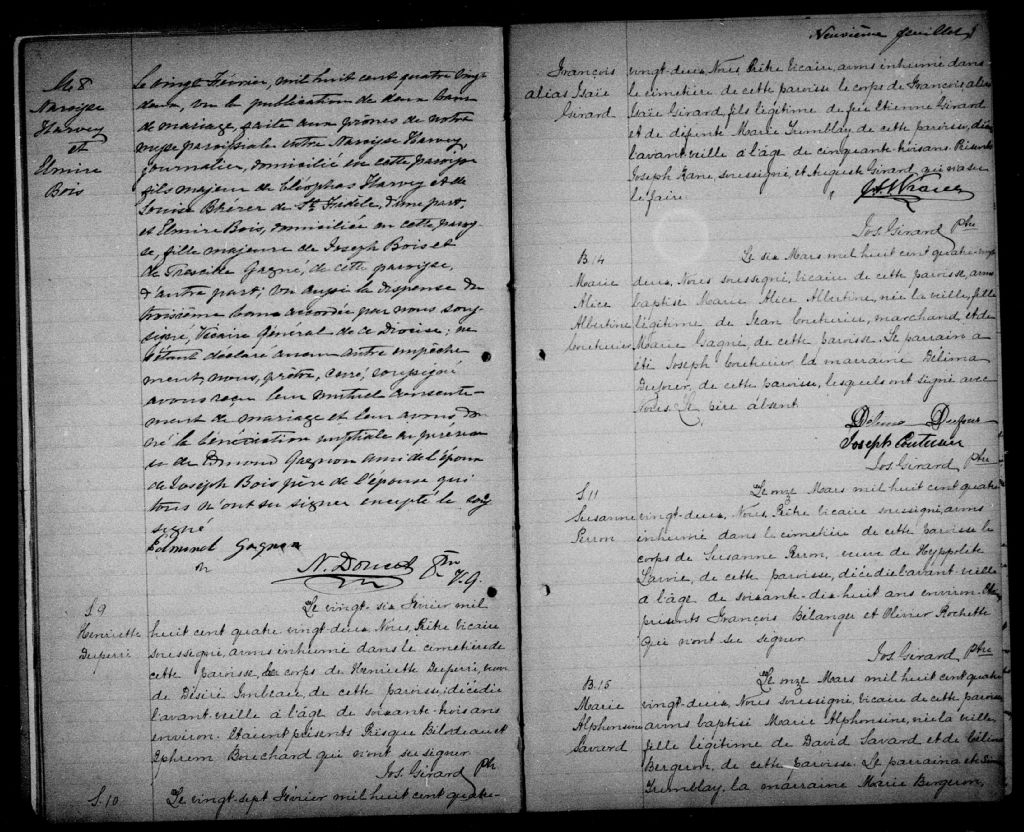 M8
Narcisse
Harvey
et
Elmire
Bois
Le vingt Février, mil huit cent quatre vingt
deux, vu la publication de deux bans
de mariage, faite aux prônes de notre
messe paroissiale entre Narcisse Harvey
journalier, domicilié en cette paroisse
fils majeur de Cléophas Harvey et de
Louise Bhérer de St Fidèle, d'une part,
et Elmire Bois, domiciliée en cette parois-
se, fille majeure de Joseph Bois et
de Gagné, de cette paroisse,
d'autre part; vu aussi la dispense du
troisième ban accordée par nous sous-
signé, Vicaire Général de ce Diocèse; ne
s'étant déclaré aucun autre empêche
ment, nous, prêtre, curé, soussigné
avons reçu leur mutuel consente-
ment de mariage et leur avons don
né la bénédiction nuptiale en présen
ce de Edmond Gagnon ami de l'époux
de Joseph Bois père de l'épouse qui
tous n'ont su signer excepté le sous
signé
Edmond Gagnon
N. Doucet Ptre
V.G.
S.9
Henriette
Duperré
Le vingt-six Février mil
huit cent quatre vingt-deux, Nous, Prêtre Vicaire
soussigné, avons inhumé dans le cimetière de
cette paroisse, le corps de Henriette Duperré, veuve
de Désiré Imbeau, de cette paroisse; décédée
l'avant-veille à l'âge de soixante-trois ans
environ. Etaient présents Risque Bilodeau et
Ephrem Bouchard qui n'ont su signer
Jos. Girard Ptre
S.10
Le vingt-sept Février mil huit cent quatre-
Neuvième feuillet
François
alias Isaïe
Girard
vingt-deux, Nous, Prêtre Vicaire, avons inhumé dans
le cimetière de cette paroisse le corps de François alias
Isaïe Girard, fils légitime de feu Etienne Girard
et de défunte Marie Tremblay de cette paroisse, décédé
l'avant-veille à l'âge de cinquante-trois ans. Présents
Joseph Kane, soussigné, et Auguste Girard, qui n'a su
le faire.
Jos. Girard Ptre
B.14
Marie
Alice
Albertine
Couturier
Le six Mars mil huit cent quatre-vingt
deux, Nous soussigné, vicaire de cette paroisse, avons
baptisé Marie Alice Albertine, née la veille, fille
légitime de Jean Couturier, marchand, et de
Marie Gagné, de cette paroisse. Le parrain a
été Joseph Couturier la marraine Délima
Dufour, de cette paroisse, lesquels ont signé avec
Nous. Le père absent.
Delima Dufour
Joseph Couturier
Jos. Girard Ptre
S.11
Susanne
Perron
Le onze Mars mil huit cent quatre
vingt-deux, Nous, Prêtre Vicaire soussigné, avons
inhumé dans le cimetière de cette paroisse le
corps de Susanne Perron, veuve de Hyppolite
Lavoie, de cette paroisse, décédée l'avant-veille
à l'âge de soixante-dix huit ans environ.
présents François Bélanger et Olivier Rochette
qui n'ont su signer
Jos. Girard Ptre
B.15
Marie
Alphonsine
Savard
Le onze Mars mil huit cent quatre
vingt-deux, Nous soussigné, vicaire de cette paroisse
avons baptisé Marie Alphonsine, née la veille,
fille légitime de David Savard et de Célina
Bergeron, de cette paroisse. Le parrain a été
Tremblay, la marraine Marie Bergeron,